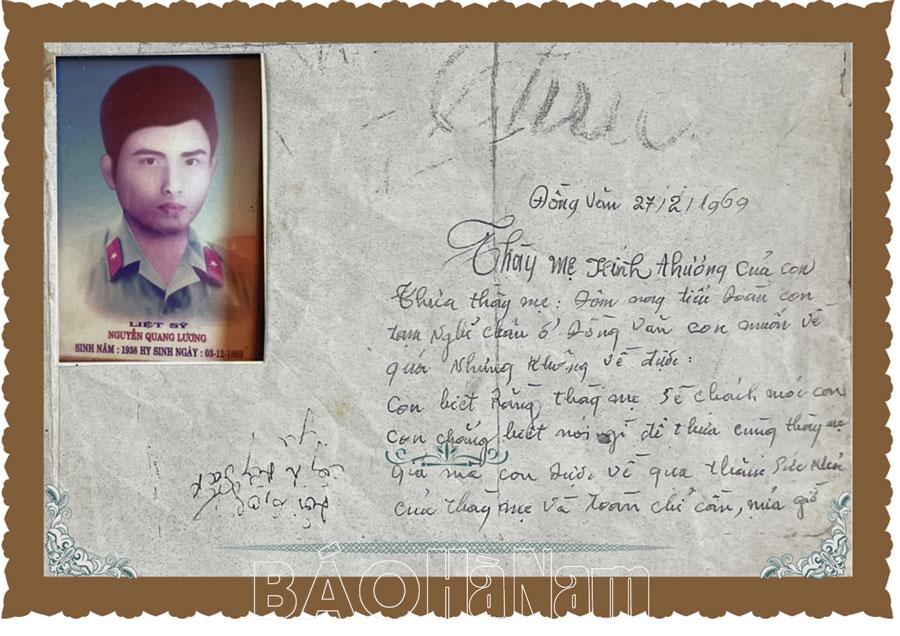 LIỆT SỸ
NGUYỄN QUANG LƯƠNG
SINH NĂM : 1938 HY SINH NGÀY : 03-12-1969
Đồng Văn 27/2/1969
Thày mẹ kính thương của con
Thưa thày mẹ: Đêm nay tiểu đoàn con
tạm nghỉ chân ở Đồng Văn con muốn về
quá nhưng không về được:
Con biết rằng thày mẹ sẽ chách móc con
Con chẳng biết nói gì để thưa cùng thày mẹ
giá mà con được về qua thăm sức khỏe
của thày mẹ và toàn chỉ cần, nửa giờ
BÁO Hà Nam